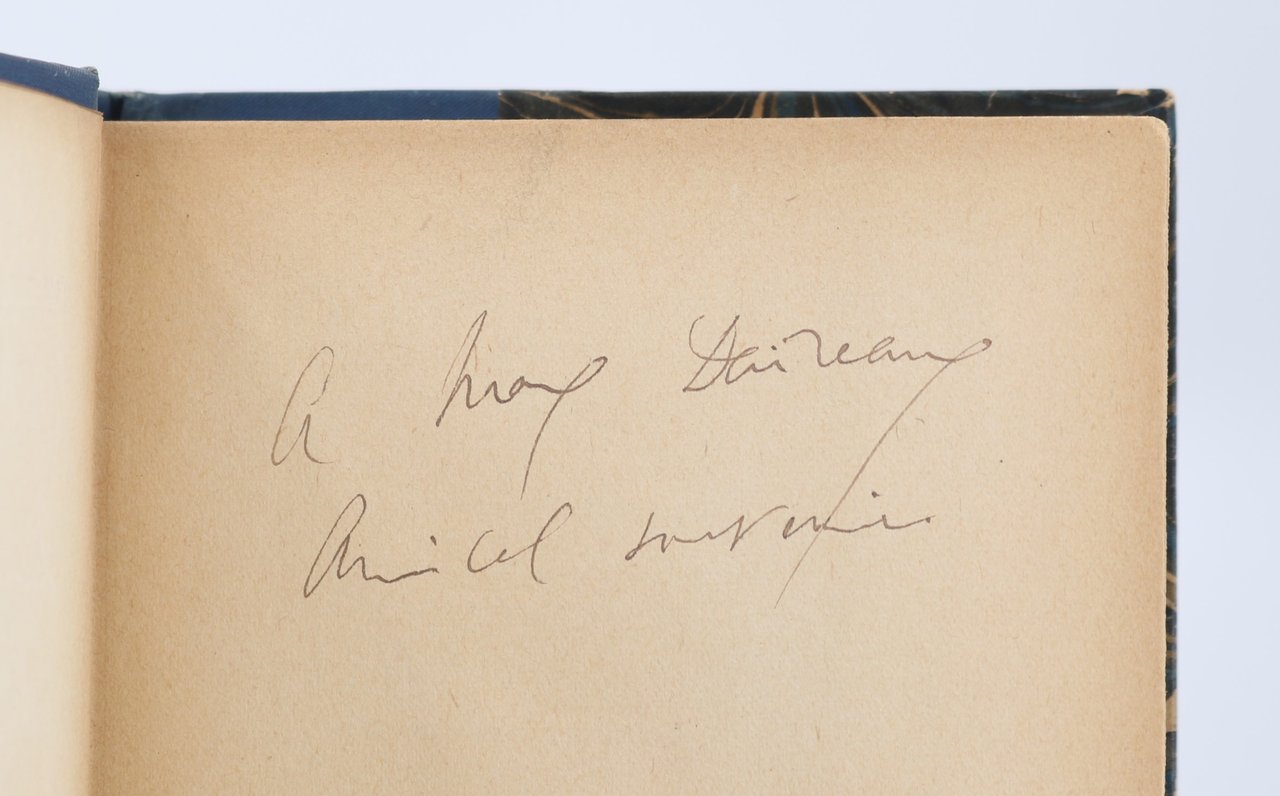 A Max Daireaux
Amical souvenir.